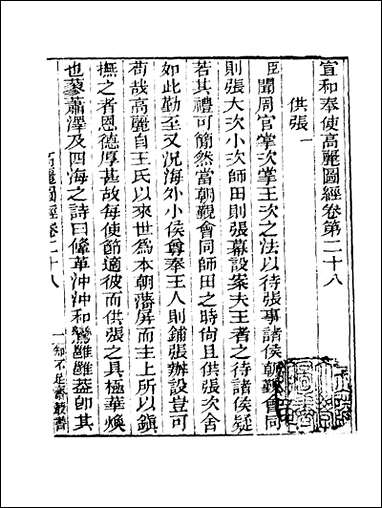 宣和奉使高麗圖經卷第二十八
供張一
臣聞周官掌次掌王次之法以待張事諸侯朝覲會同
則張大次小次師田則張幕設案夫王者之待諸侯疑
若其禮可簡然當朝覲會同師田之時尚且供張次舍
如此勤至又況海外小侯尊奉王人則鋪張辦設豈可
苟哉高麗自王氏以來世為本朝藩屏而主上所以鎮
撫之者恩德厚甚故每使節適彼而供張之具極華煥
也蓼蕭澤及四海之詩曰鞗革沖沖和鸞雝雝蓋即其
高麗圖經卷二十八
一
知不足齋叢書